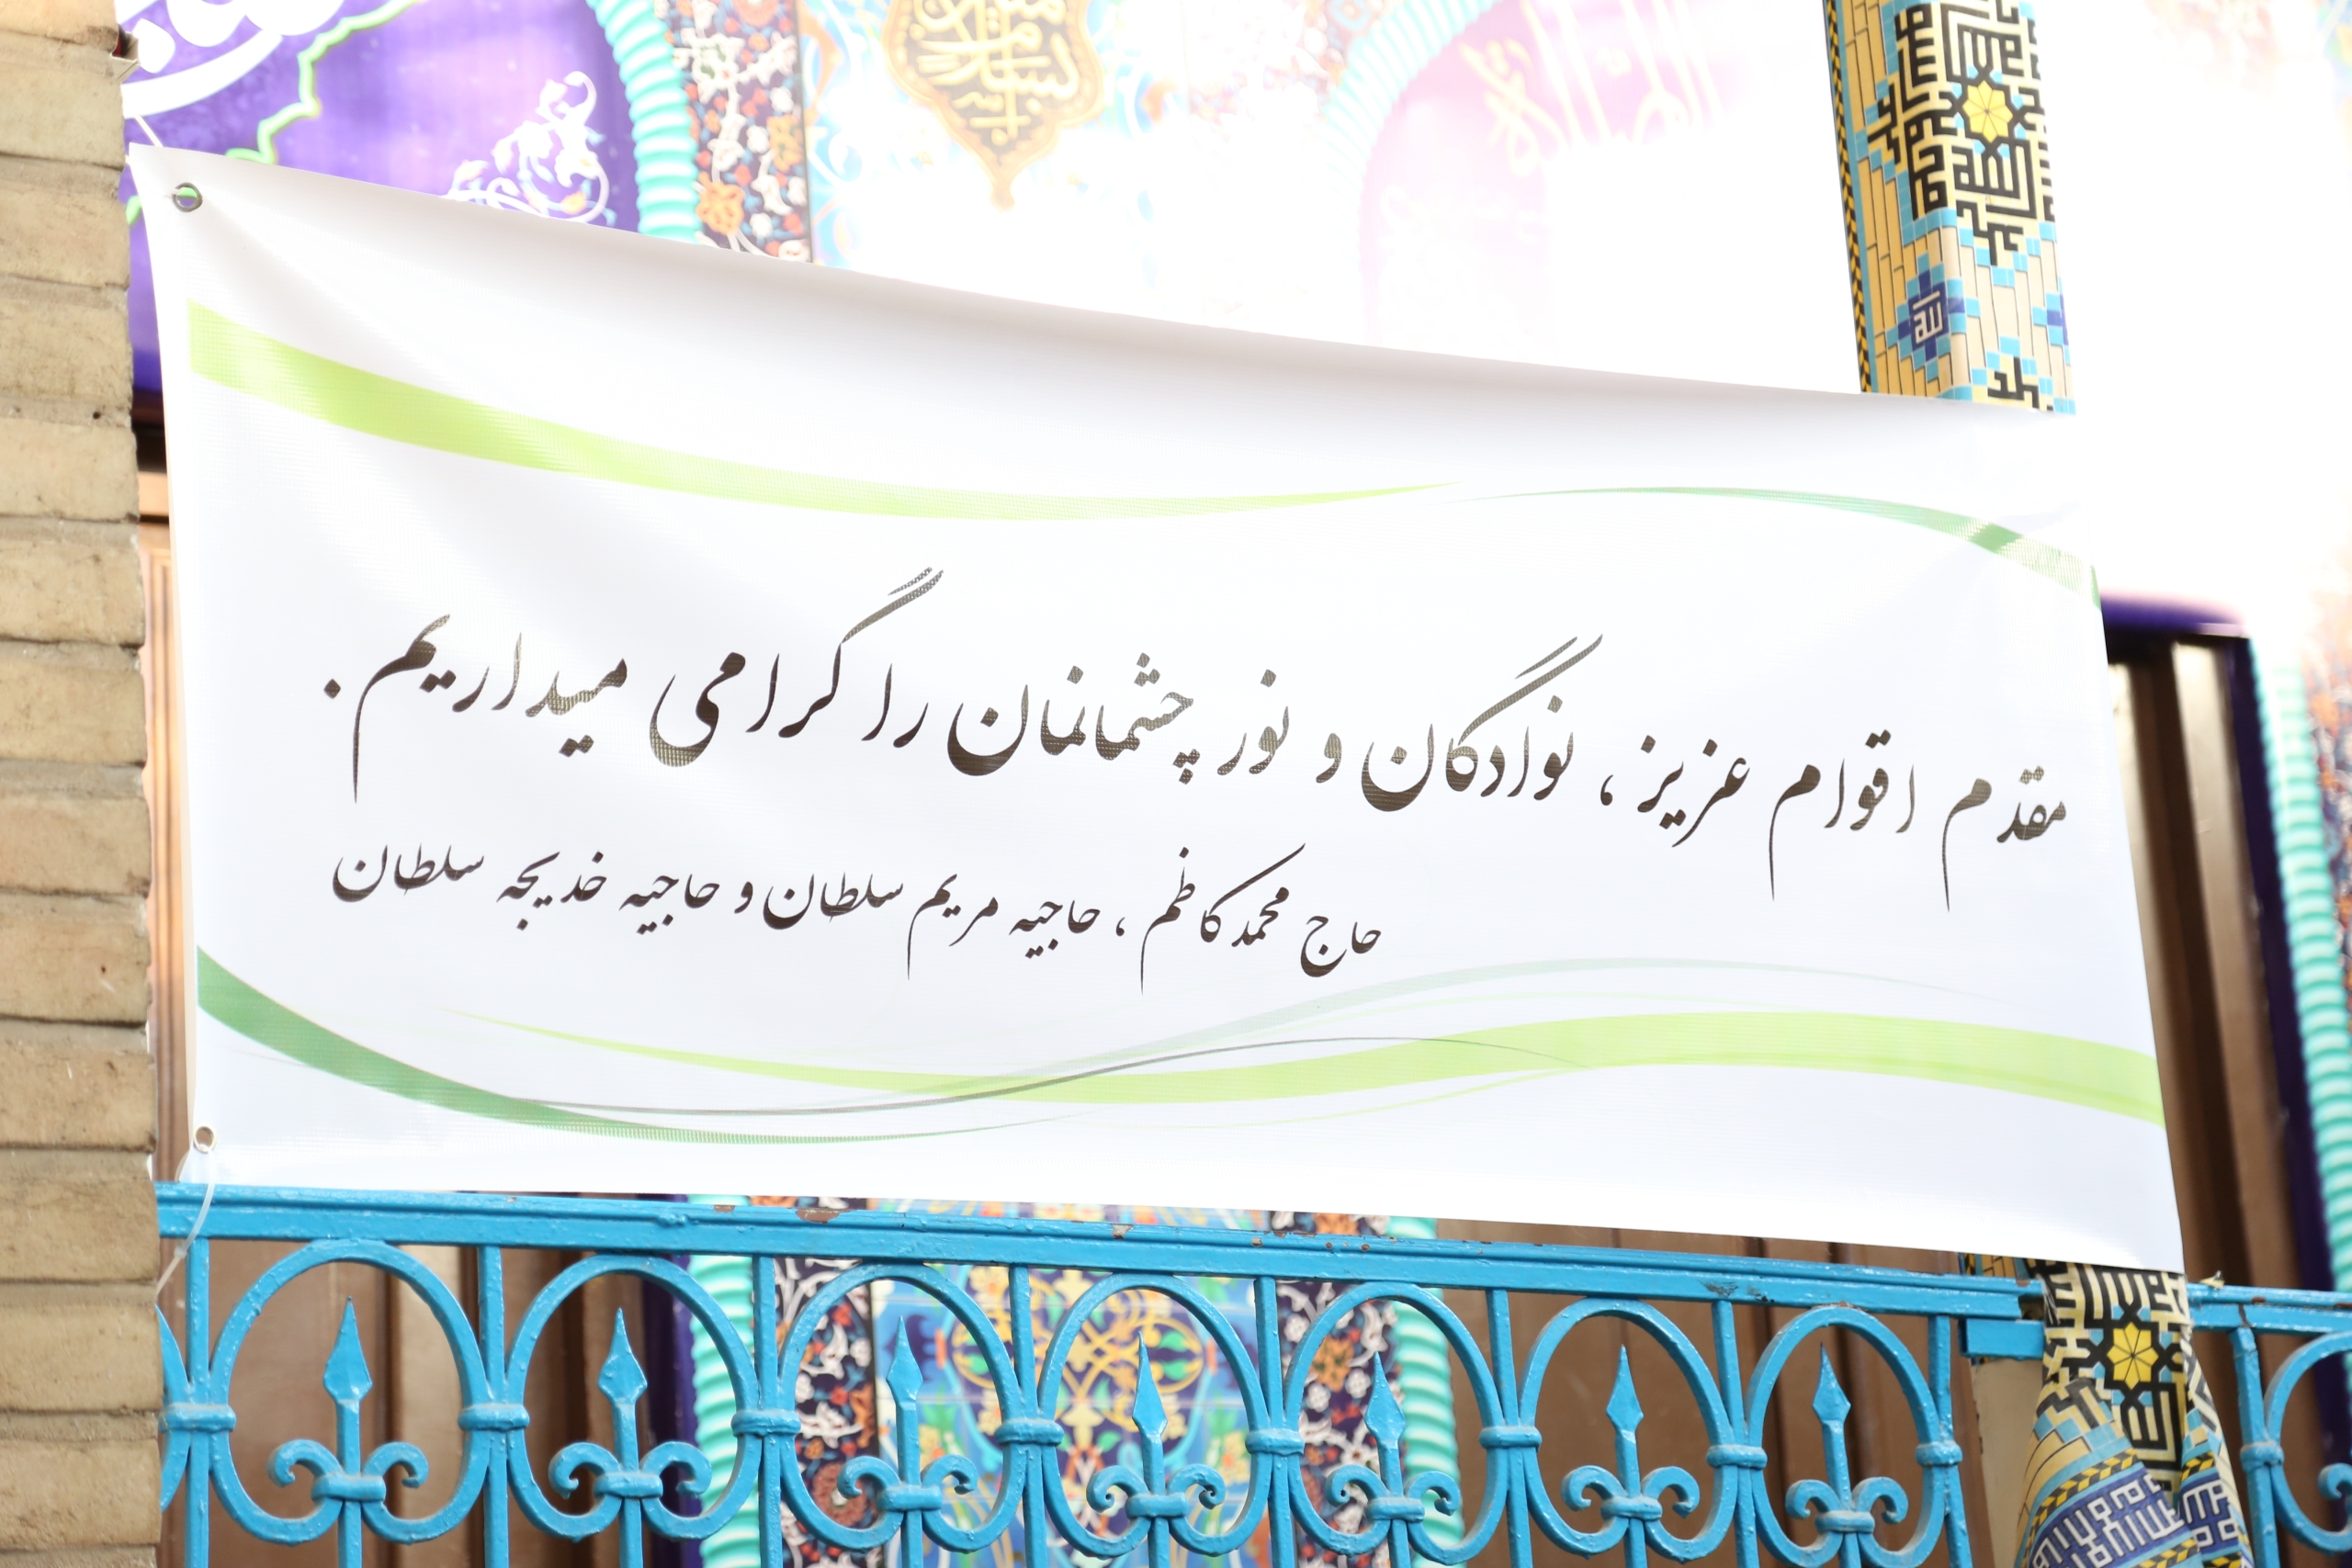 مقدم اقوام عزیز، نوادگان و نور چشمانمان را گرامی میداریم.
حاج محمد کاظم، حاجیه مریم سلطان و حاجیه خدیجه سلطان
الله